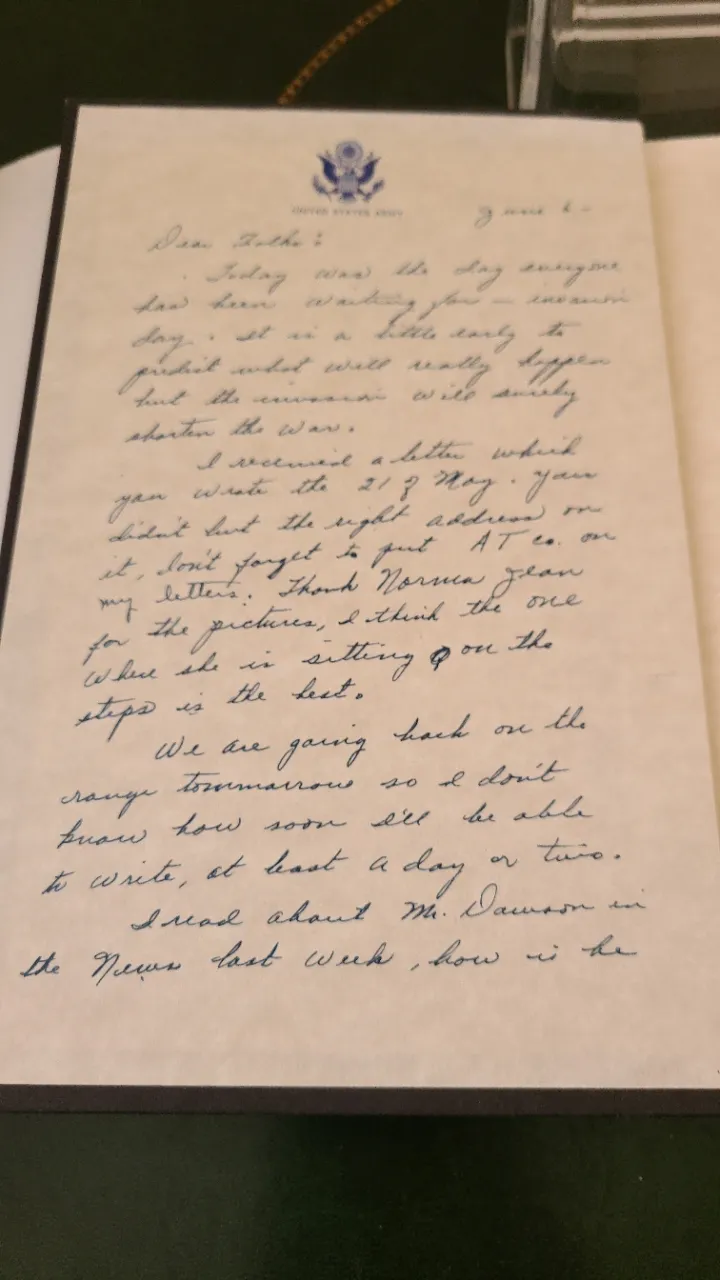 UNITED STATES ARMY
June 6-
Dear Folks:
Today was the day everyone
has been waiting for — invasion
day. It is a little early to
predict what will really happen
but the invasion will surely
shorten the war.
I received a letter which
you wrote the 21 of May. You
didn't put the right address on
it, don't forget to put AT co. on
my letters. Thank Norma Jean
for the pictures, I think the one
where she is sitting on the
steps is the best.
We are going back on the
range tommarrow so I don't
know how soon I'll be able
to write, at least a day or two.
I read about Mr. Dawson in
the News last week, how is he